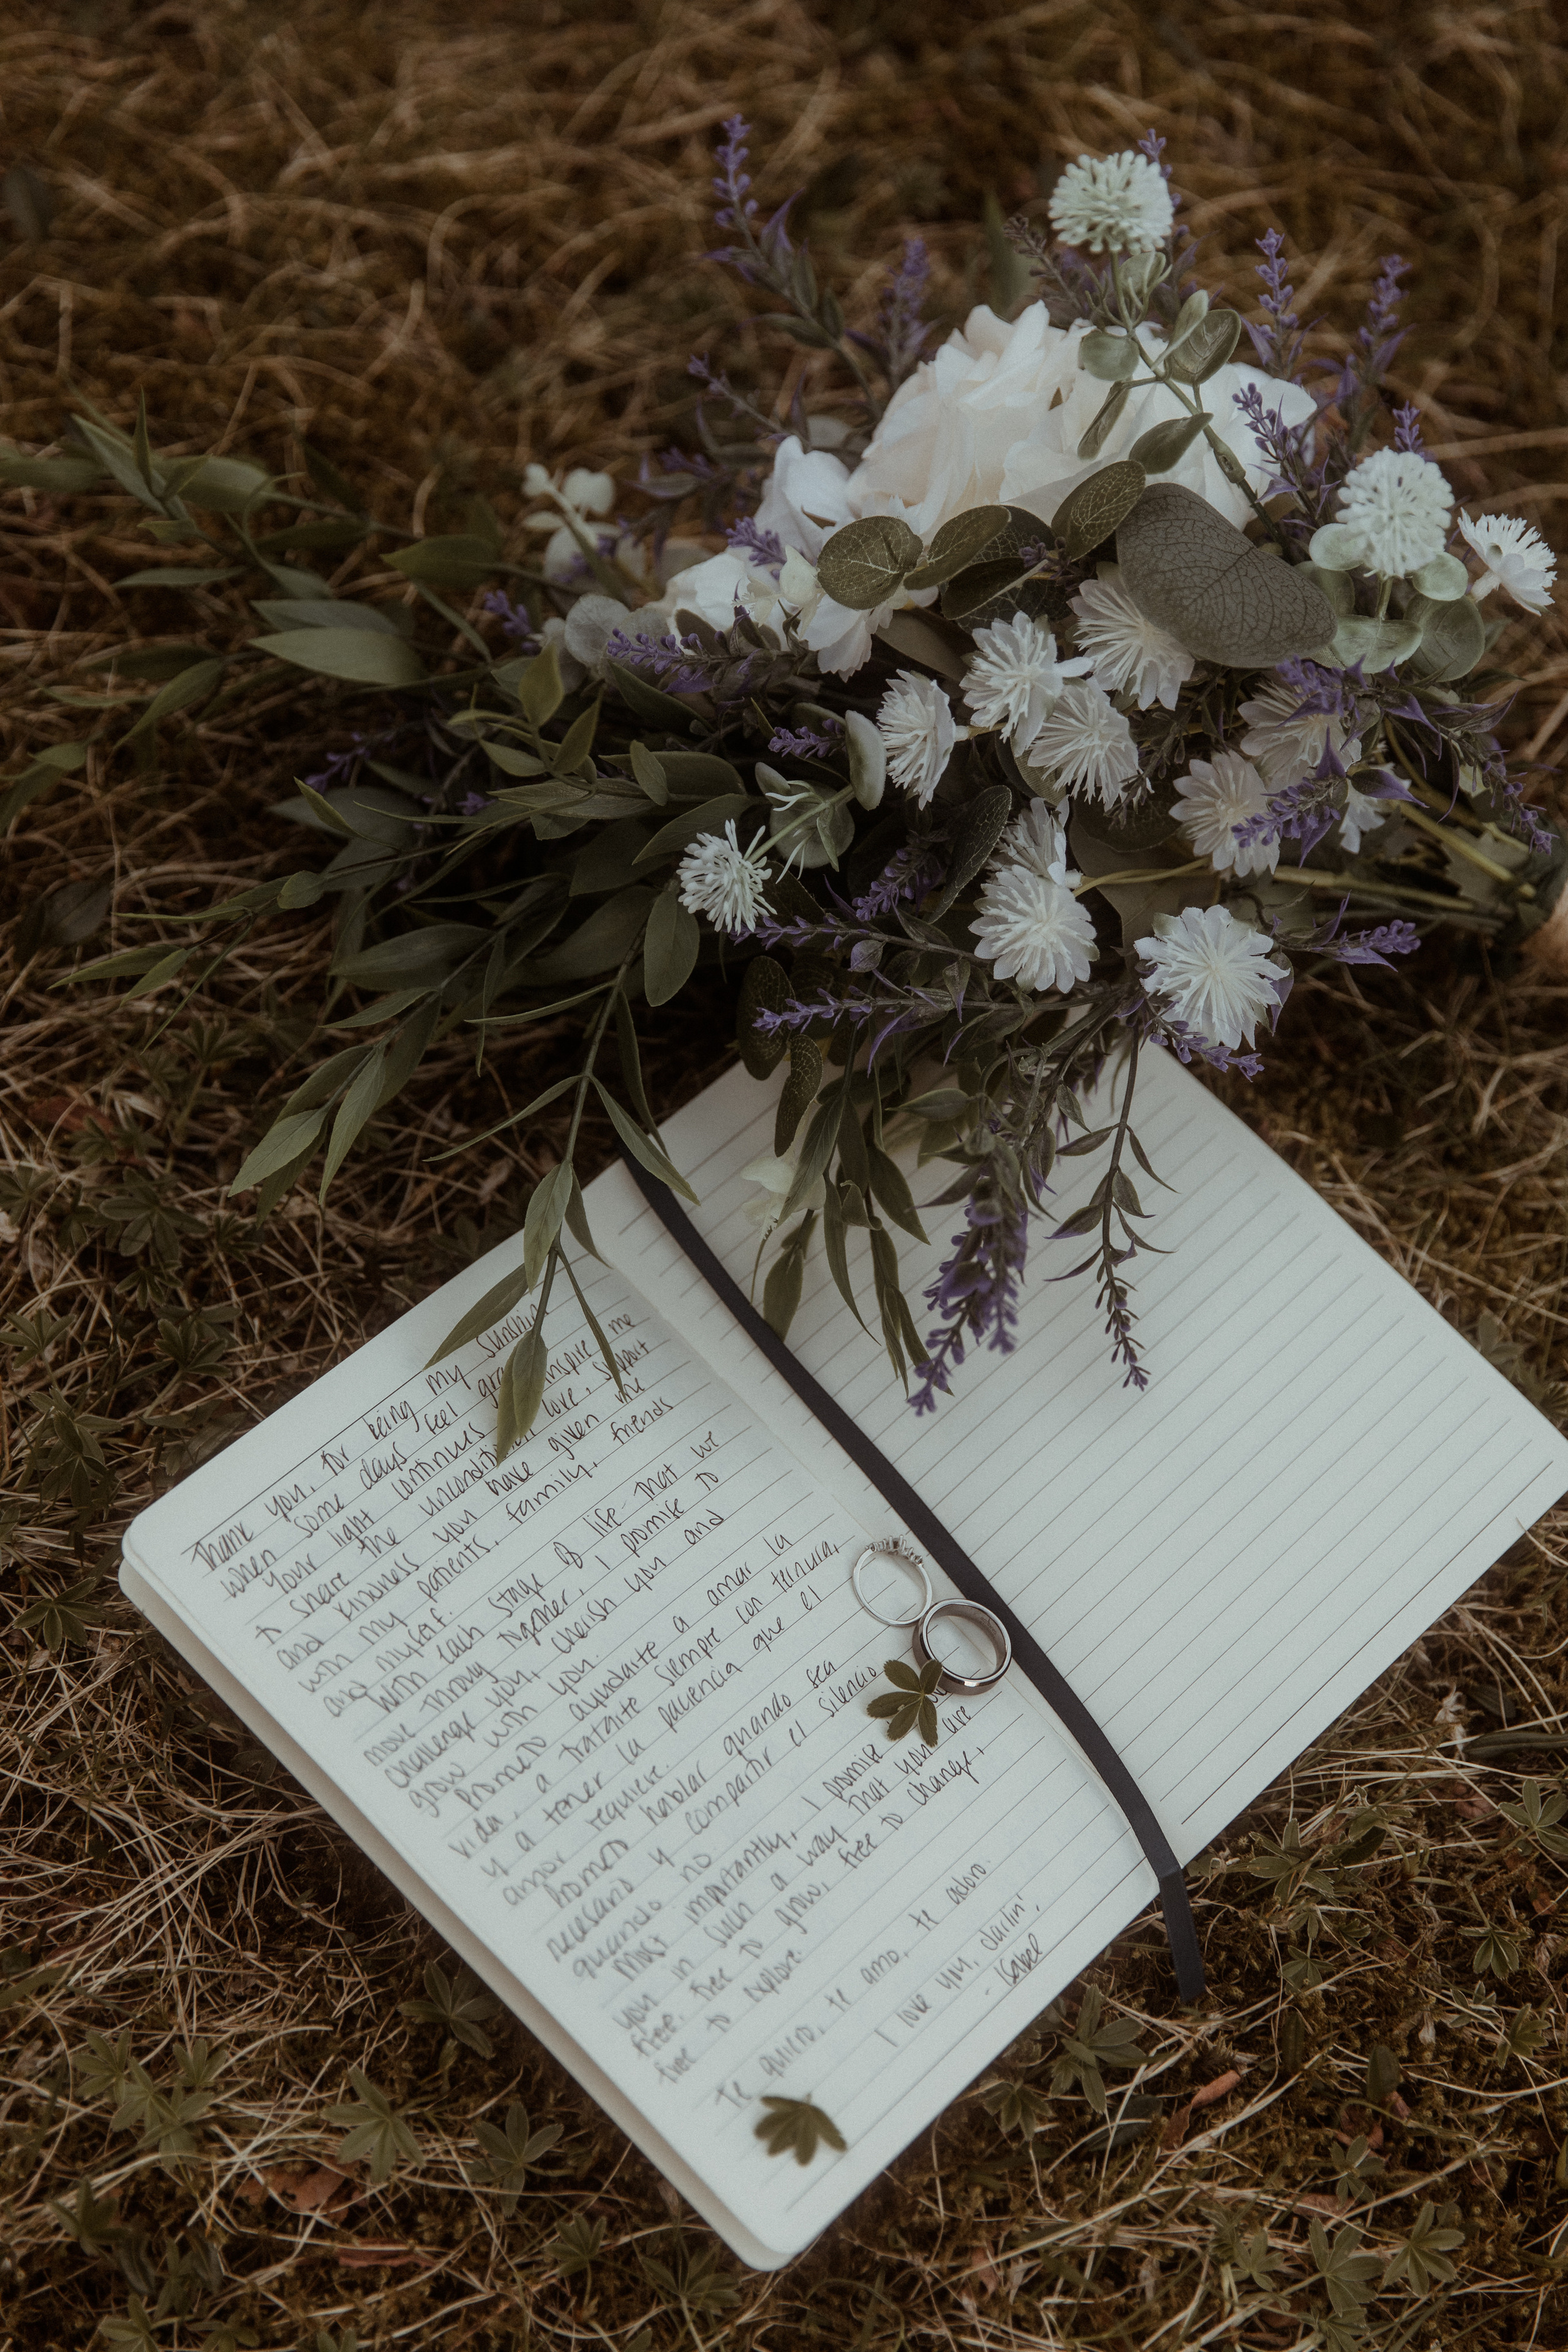 Thank you, for being my sunshine
when some days feel inspire me
Your light continues
to share the unconditional love, support
and kindness you have given me
with my patients, family, friends
and myself.
With each stage of life that we
move through together, I promise to
challenge you, cherish you and
grow with you.
Prometo ayudarte a amar la
vida, a tratarte siempre con ternura,
y a tener la paciencia que el
amor requiere.
Prometo hablar quando sea
necesario y compartir el silencio
quando no
Most importantly, I promise
you in such a way that you are
free. free to grow, free to change,
free to explore.
Te quiero, te amo, te adoro.
I love you, darlin',
- Isabel